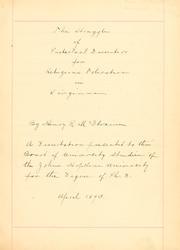 The Struggle
of
Protestant Dissenters
for
Religious Toleration
in
Virginia
By Henry R. McIlwaine
A Dissertation presented to the
Board of University Studies of
the Johns Hopkins University
for the Degree of Ph.D.
April 1893.